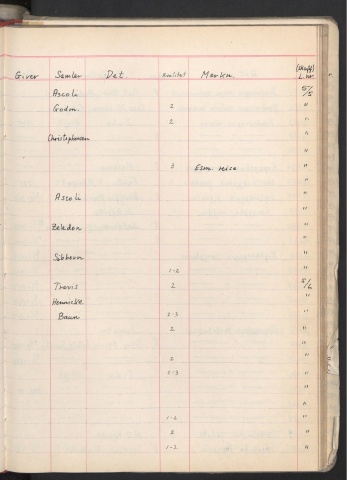 Giver Samler Det. Kvalitet Merkn. (Skuff) L.nr.
Ascoli 5/5
Godm. 2 "
2 "
Christophersen "
"
3 Esm. reise "
"
Ascoli "
"
Zeledon "
"
Sibbern "
1-2 "
Travis 2 5/6
"
Baun 2-3 "
2 "
"
2 "
2-3 "
"
"
1-2 "
2 "
1-2 "